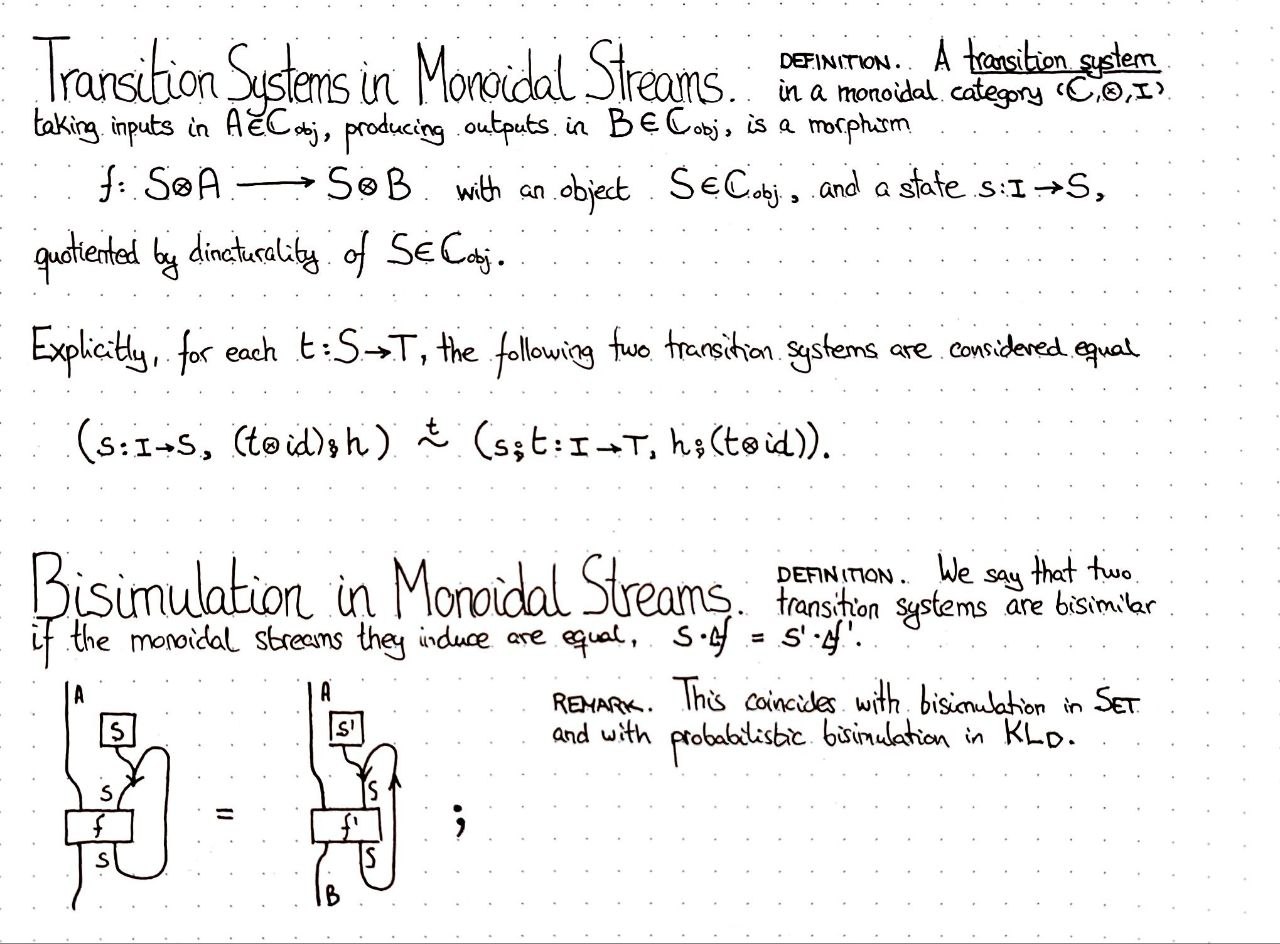 Transition Systems in Monoidal Streams. DEFINITION. A transition system
in a monoidal category (C,⊗,I)
taking inputs in A∈C_obj, producing outputs in B∈C_obj, is a morphism
f: S⊗A ⟶ S⊗B with an object S∈C_obj, and a state s:I→S,
quotiented by dinaturality of S∈C_obj.
Explicitly, for each t:S→T, the following two transition systems are considered equal
(s:I→S, (t⊗id)⨾h) ~^t (s⨾t:I→T, h⨾(t⊗id)).
Bisimulation in Monoidal Streams. DEFINITION. We say that two
transition systems are bisimilar
if the monoidal streams they induce are equal, s·f = s'·f'.
REMARK. This coincides with bisimulation in SET
and with probabilistic bisimulation in KL_D.
A
S
S
f
S
=
A
S'
S
f'
S
B
;